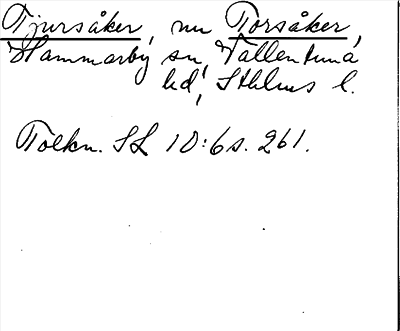 Tjursåker, nu Torsåker,
Hammarby sn, Vallentuna
hd, Sthlms l.
Tolkn. SL 10:6 s. 261.